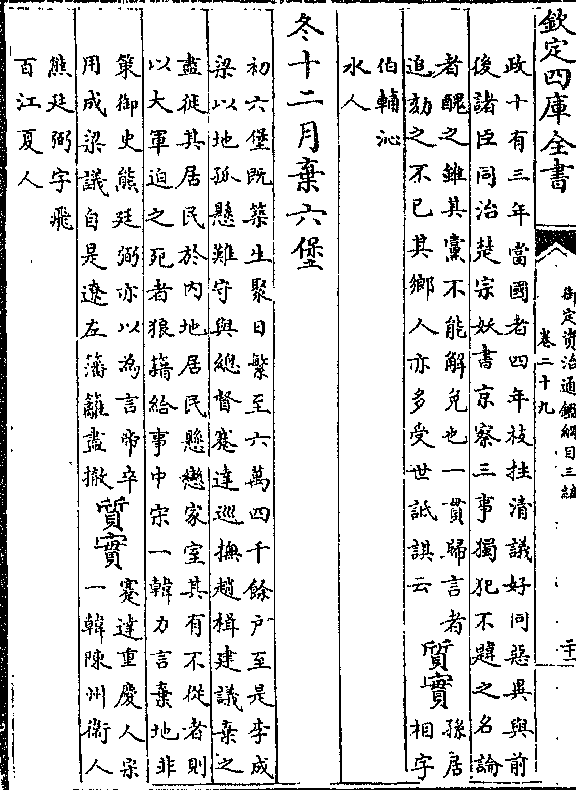 欽定四庫全書
御定資治通鑑綱目三編
卷二十九
二十一
政十有三年當國者四年枝拄清議好同惡異與前
後諸臣同治楚宗妖書京察三事獨犯不韙之名論
者醜之雖其黨不能解免也一貫歸言者
追劾之不已其鄉人亦多受世詆諆云
質實
孫居
相字
伯輔沁
水人
冬十二月棄六堡
初六堡既築生聚日繁至六萬四千餘户至是李成
梁以地孤懸難守與總督蹇達巡撫趙楫建議棄之
盡徙其居民於内地居民懸戀家室其有不從者則
以大軍迫之死者狼籍給事中宋一韓力言棄地非
策御史熊廷弼亦以為言帝卒
用成梁議自是遼左藩籬盡撤
質實
蹇達重慶人宋
一韓陳州衛人
熊廷弼字飛
百江夏人